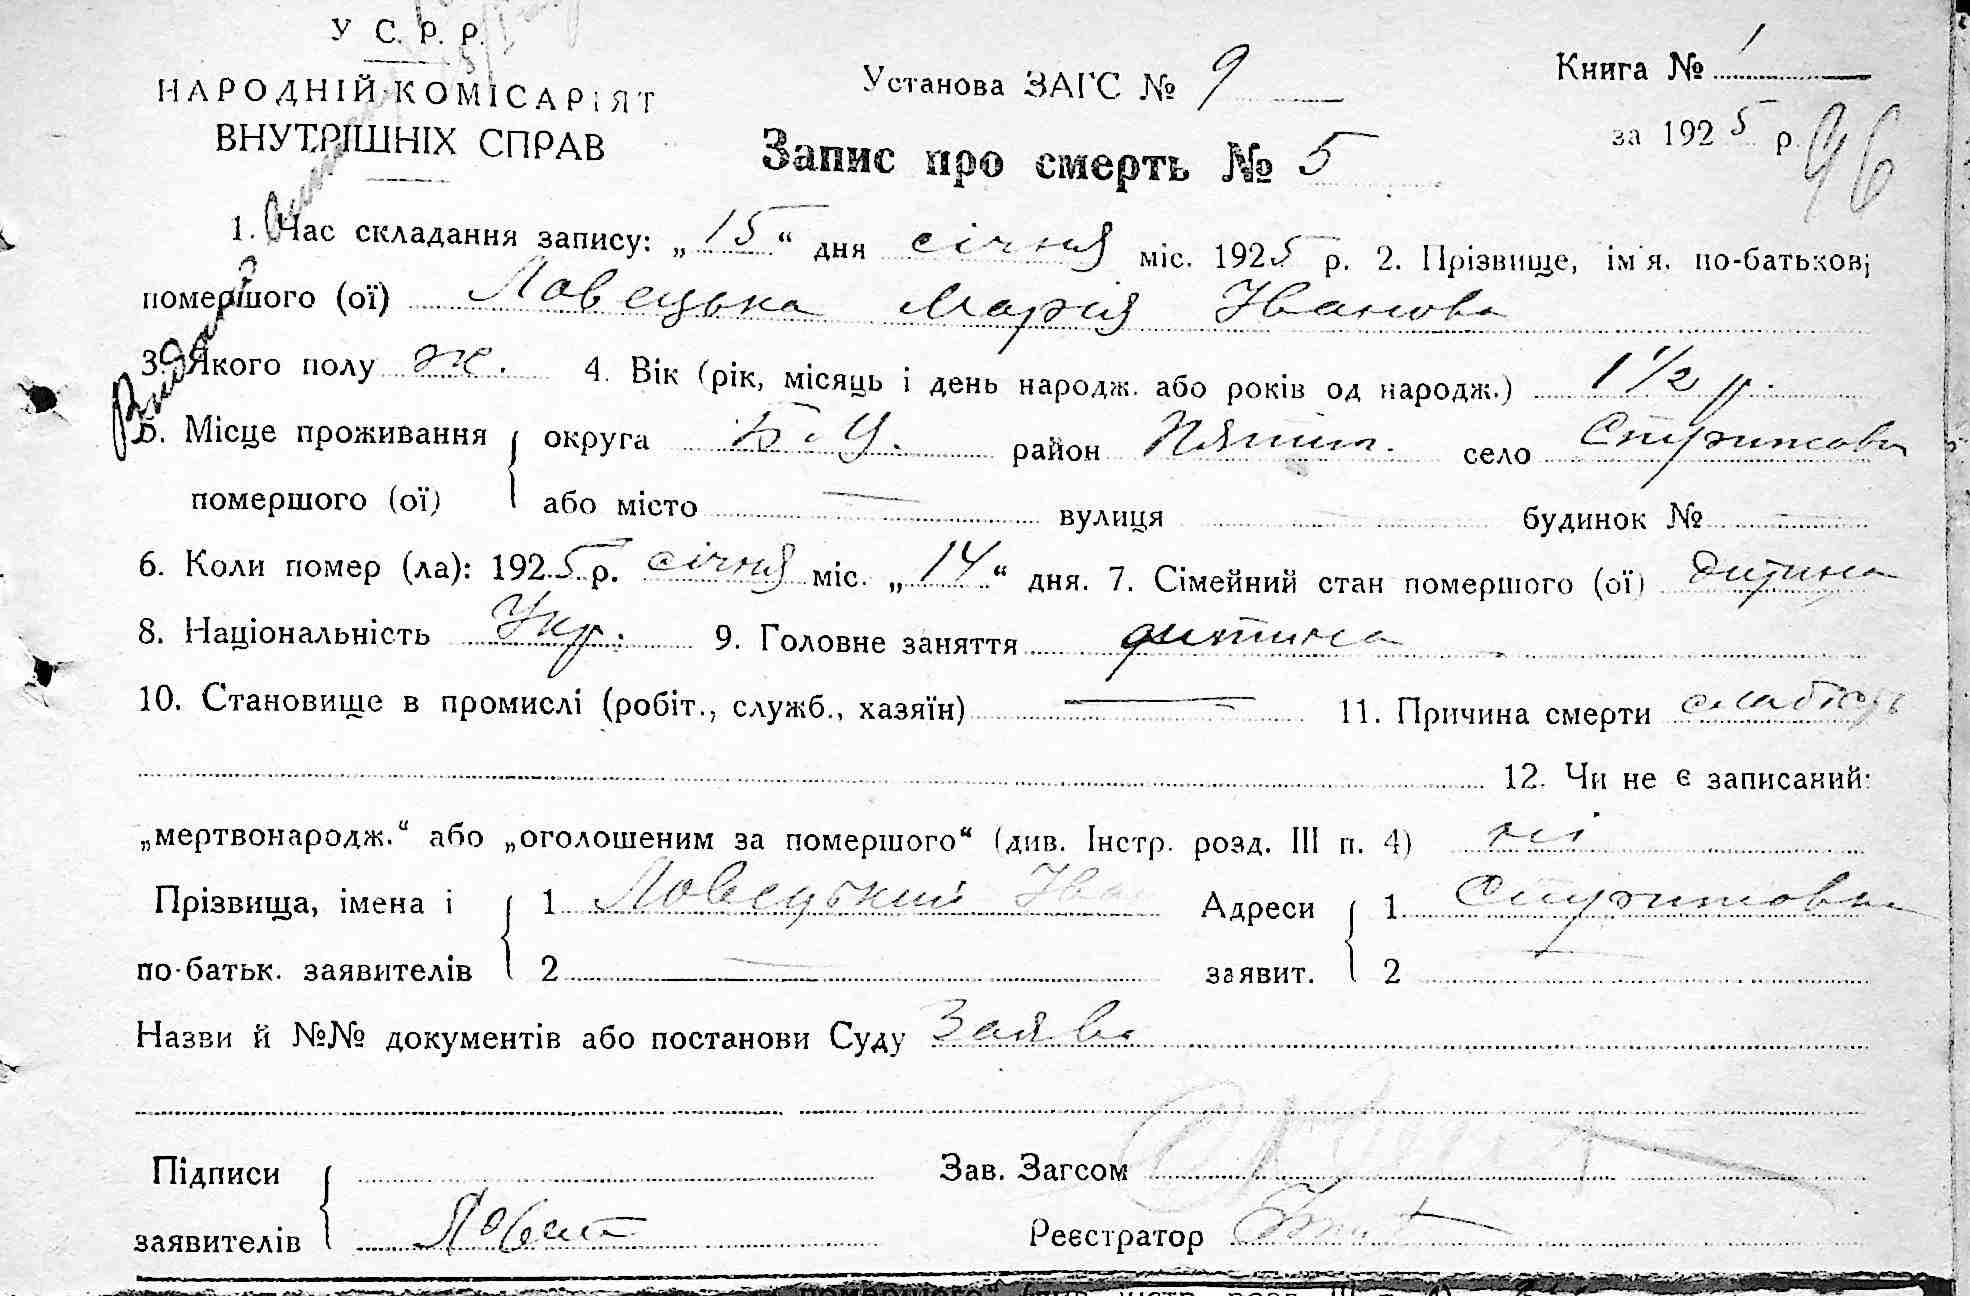 У С. Р. Р.
НАРОДНІЙ КОМІСАРІЯТ
ВНУТРІШНІХ СПРАВ
Установа ЗАГС № 9
Книга № 1
за 1925 р.
96
Запис про смерть № 5
1. Час складання запису: „15“ дня січня міс. 1925 р. 2. Прізвище, ім'я, по-батькові
помершого (ої) Ловецька Марія Іванова
3. Якого полу ж. 4. Вік (рік, місяць і день народж. або років од народж.) 1 1/2 р.
5. Місце проживання помершого (ої) округа Б.Ц. район Пятиг. село Стрижовки
або місто — вулиця — будинок № —
6. Коли помер (ла): 1925 р. січня міс. „14“ дня. 7. Сімейний стан помершого (ої) дитина
8. Національність Укр. 9. Головне заняття дитина
10. Становище в промислі (робіт., служб., хазяїн) — 11. Причина смерти слабість
12. Чи не є записаний:
„мертвонародж.“ або „оголошеним за помершого“ (див. Інстр. розд. III п. 4) ні
Прізвища, імена і по-батьк. заявителів 1 Ловецький Іван Адреси заявит. 1 Стрижовка
2 — 2 —
Назви й №№ документів або постанови Суду Заява
Підписи заявителів Ловец
Зав. Загсом
Реєстратор